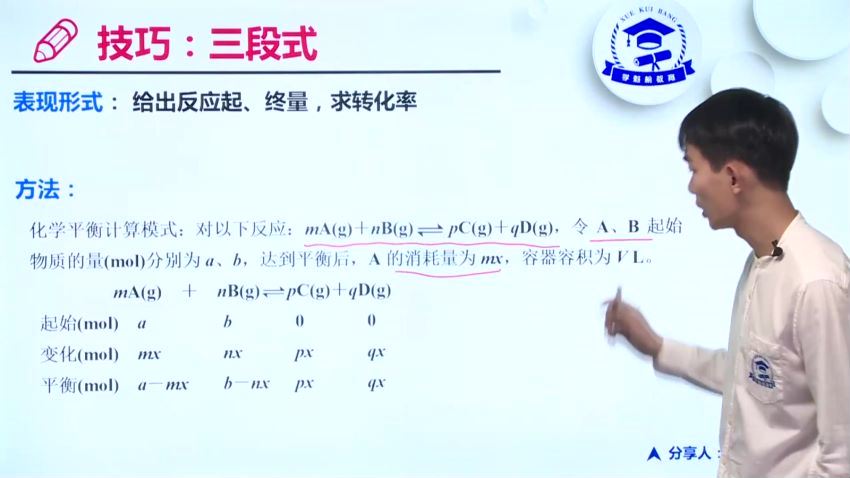 技巧：三段式
XUE KUI BANG
学魁榜教育
表现形式： 给出反应起、终量，求转化率
方法：
化学平衡计算模式：对以下反应：mA(g)＋nB(g)⇌pC(g)＋qD(g)，令 A、B 起始
物质的量(mol)分别为 a、b，达到平衡后，A 的消耗量为 mx，容器容积为 V L。
mA(g) ＋ nB(g)⇌pC(g)＋qD(g)
起始(mol) a b 0 0
变化(mol) mx nx px qx
平衡(mol) a－mx b－nx px qx
分享人：